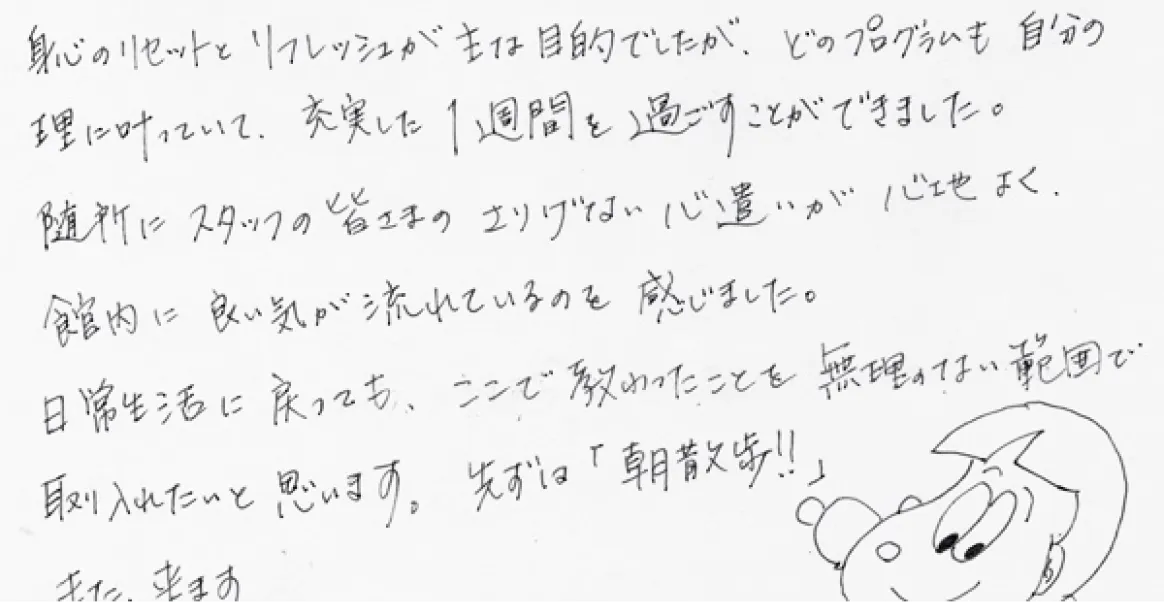 身心のリセットとリフレッシュが主な目的でしたが、どのプログラムも自分の
理に叶っていて、充実した1週間を過ごすことができました。
随所にスタッフの皆さまのさりげない心遣いが心地よく、
館内に良い気が流れているのを感じました。
日常生活に戻っても、ここで教わったことを無理のない範囲で
取り入れたいと思います。先ずは「朝散歩!!」
また、来ます